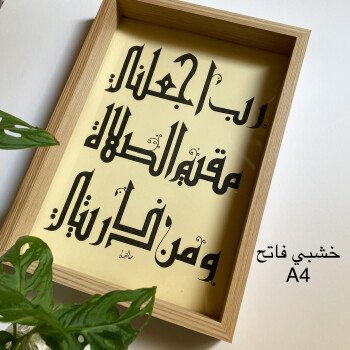 رب اجعلني
مقيم الصلاة
ومن ذريتي
خشبي فاتح
A4